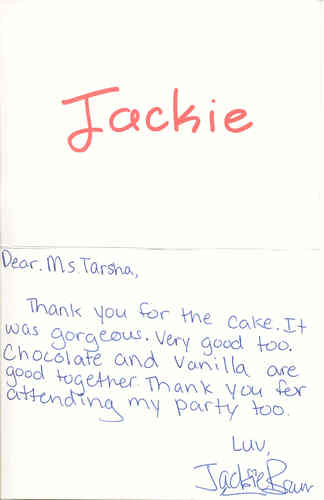 Jackie
Dear. Ms. Tarsha,
Thank you for the cake. It
was gorgeous. Very good too.
Chocolate and Vanilla are
good together. Thank you for
attending my party too.
Luv,
Jackie